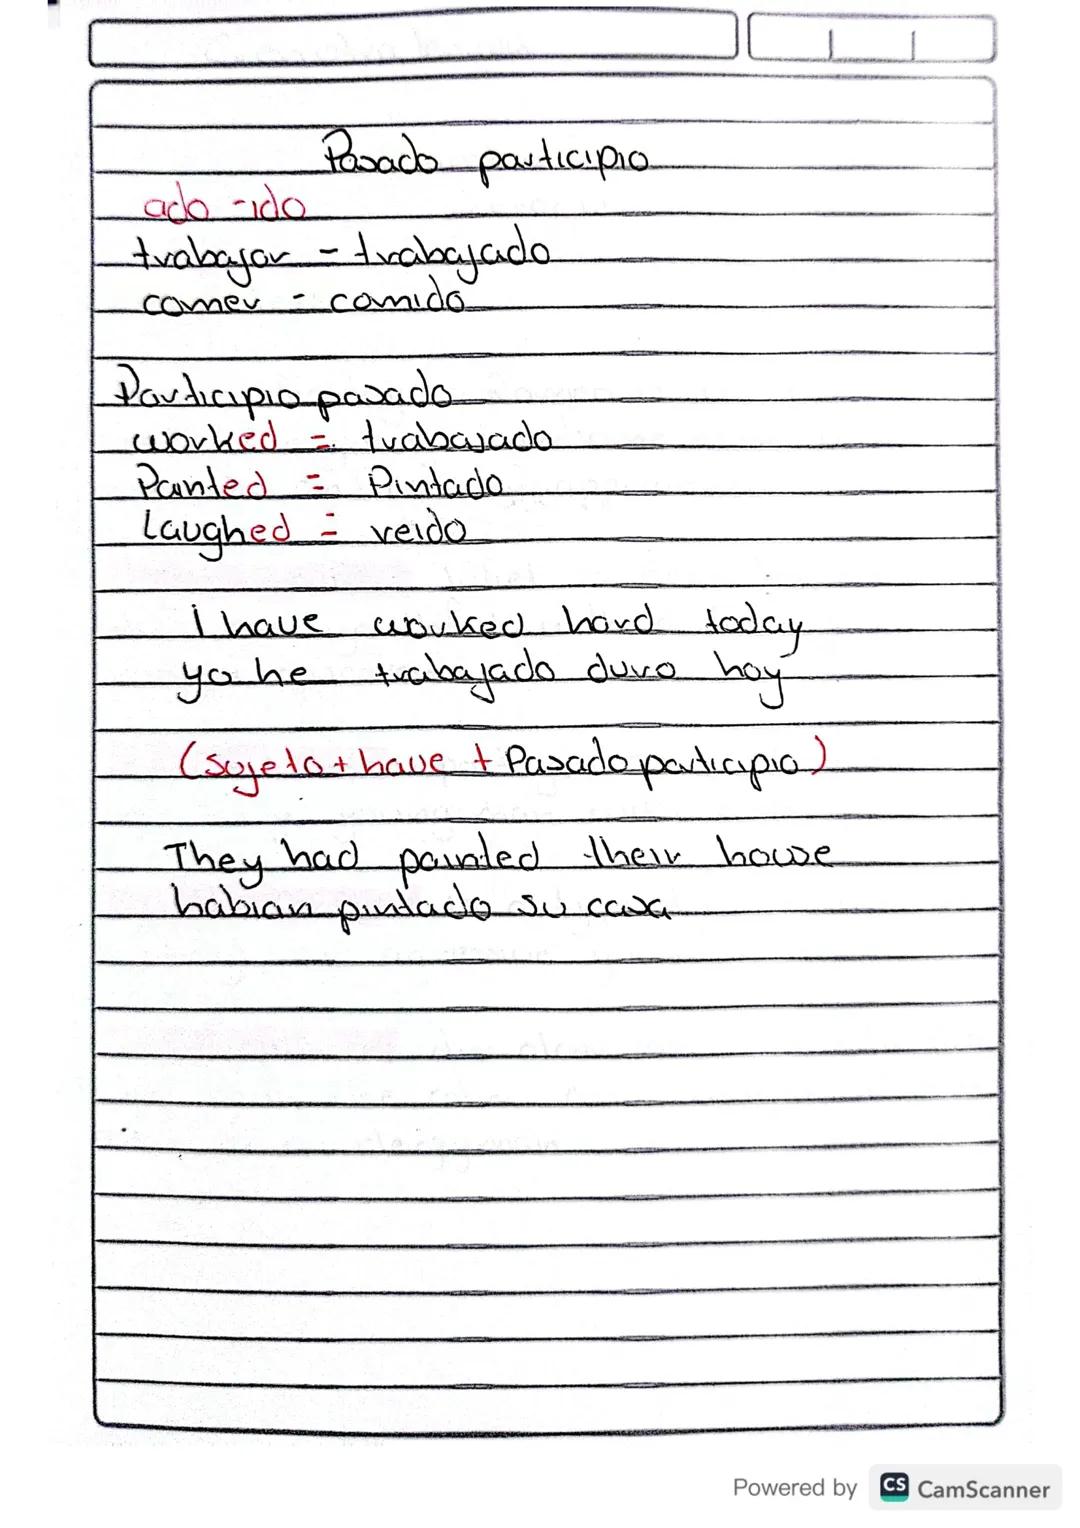 Pasado participio
ado - ido
trabajar - trabajado
comer - comido
Participio pasado
worked = trabajado
Painted = Pintado
Laughed = reido
i have worked hard today
yo he trabajado duro hoy
(sujeto + have + Pasado participio)
They had painted their house
habian pintado su casa
Powered by CS CamScanner